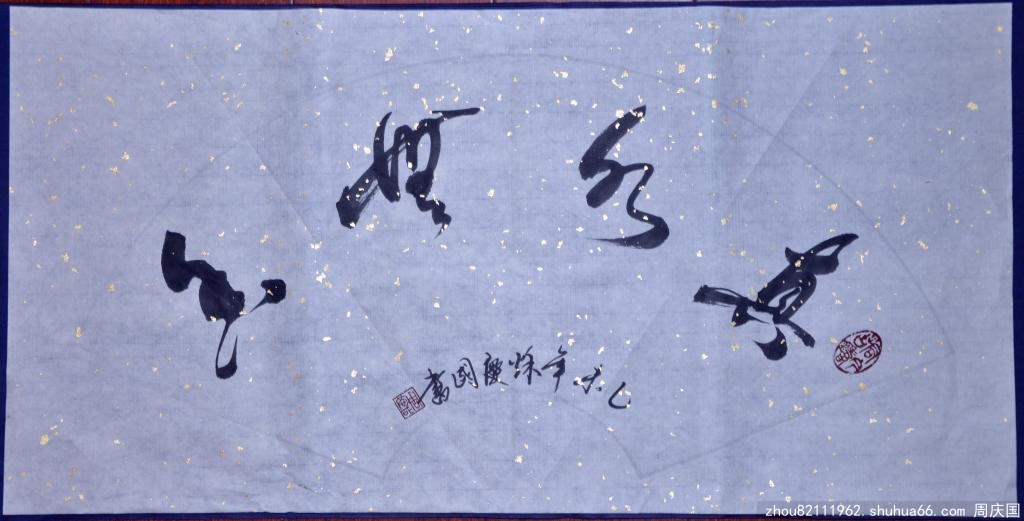 真水無香
乙未年秌慶國書
zhou82111962.shuhua66.com 周庆国